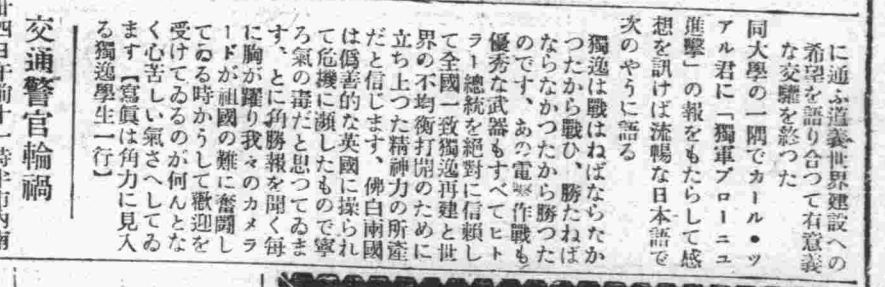 に通ふ道義世界建設への
希望を語り合つて有意義
な交驩を終つた
同大學の一隅でカール・ツ
アル君に「獨軍ブローニュ
進擊」の報をもたらして感
想を訊けば流暢な日本語で
次のやうに語る
獨逸は戰はねばならなか
つたから戰ひ、勝たねば
ならなかつたから勝つた
のです、あの電擊作戰も
優秀な武器もすべてヒト
ラー總統を絕對に信賴し
て全國一致獨逸再建と世
界の不均衡打開のために
立ち上つた精神力の所產
だと信じます、佛白兩國
は僞善的な英國に操られ
て危機に瀕したもので寧
ろ氣の毒だと思つてゐま
す、とに角勝報を聞く每
に胸が躍り我々のカメラ
ードが祖國の難に奮鬪し
てゐる時かうして歡迎を
受けてゐるのが何んとな
く心苦しい氣さへしてゐ
ます【寫眞は角力に見入
る獨逸學生一行】
交通警官輪禍
廿四日午前十一時半市內南